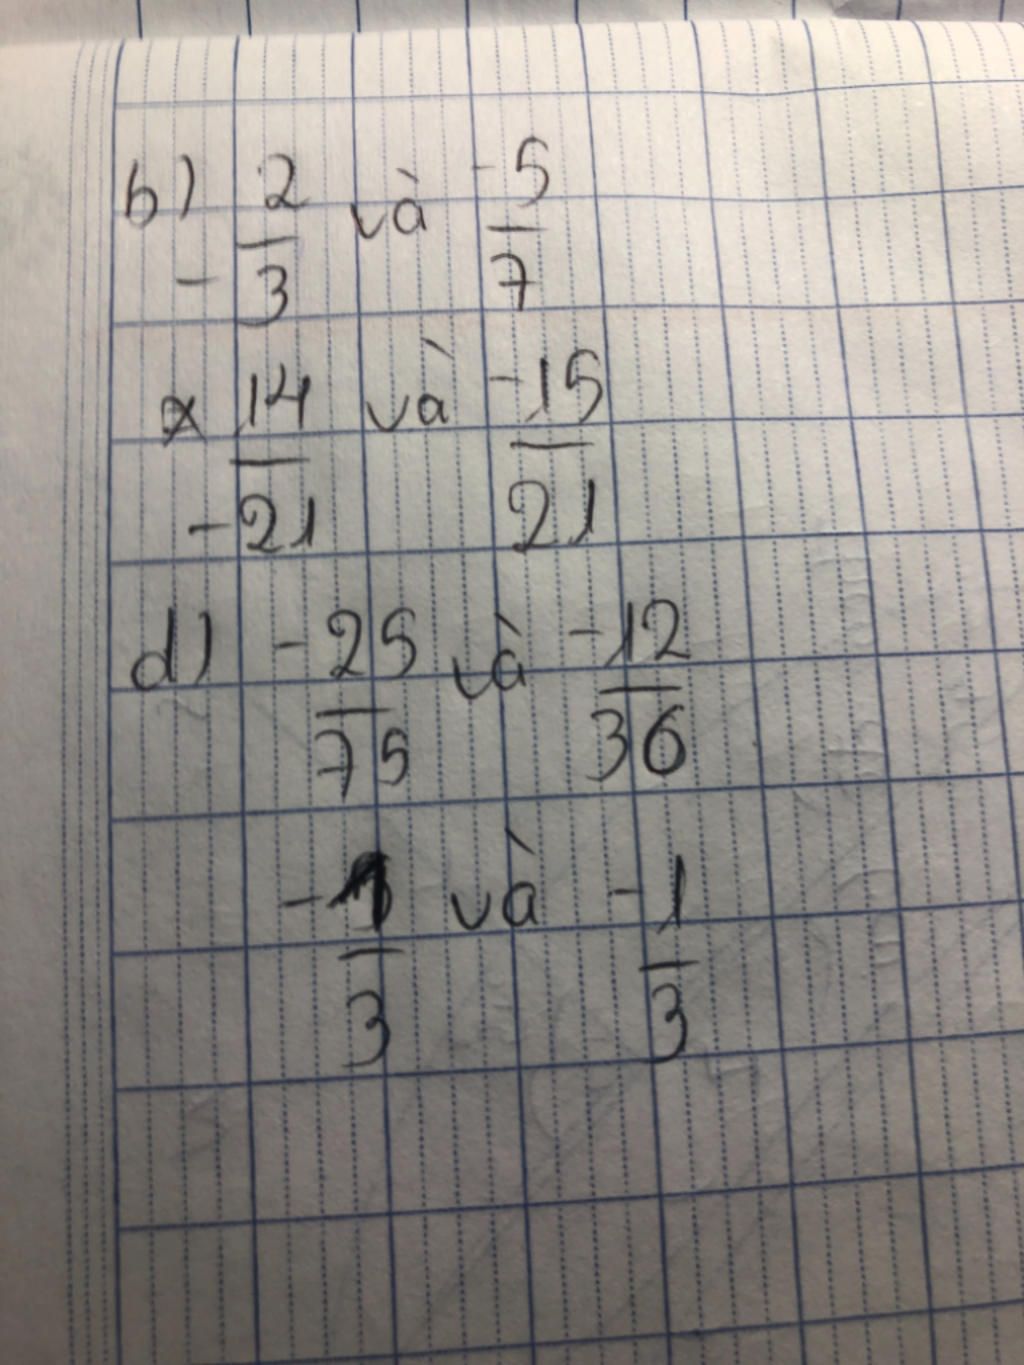 b) 2/-3 và -5/7
* 14/-21 và -15/21
d) -25/75 và -12/36
-1/3 và -1/3